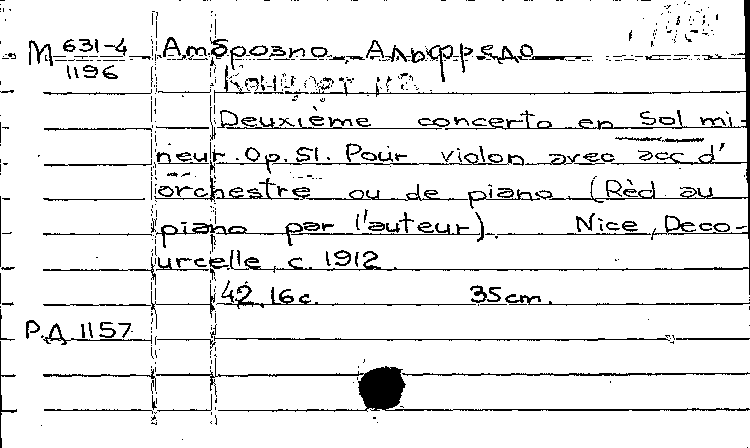 М 631-4 Амброзио, Альфредо
1196 Концерт №2
Deuxième concerto en Sol mi-
neur. Op. 51. Pour violon avec acc d'
orchestre ou de piano. (Rèd au
piano par l'auteur). Nice, Deco-
urcelle, c. 1912.
42, 16 c. 35 cm.
РД 1157